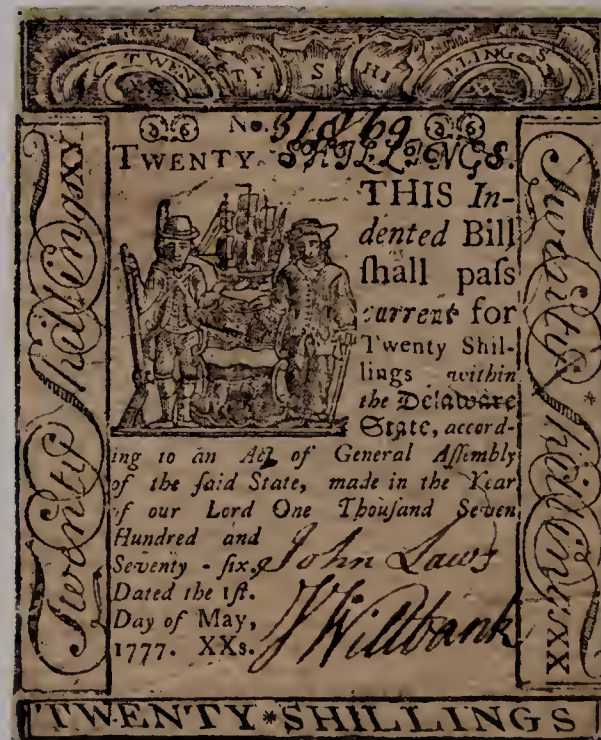 TWENTY SHILLINGS
No. 31869
TWENTY SHILLINGS.
THIS In-
dented Bill
ſhall paſs
current for
Twenty Shil-
lings within
the Delaware
State, accord-
ing to an Act of General Aſſembly
of the ſaid State, made in the Year
of our Lord One Thouſand Seven
Hundred and
Seventy-ſix.
Dated the 1ſt.
Day of May,
1777. XXs.
John Laws
J Wiltbank
Twenty ShillingsXX
Twenty * ShillingsXX
TWENTY*SHILLINGS